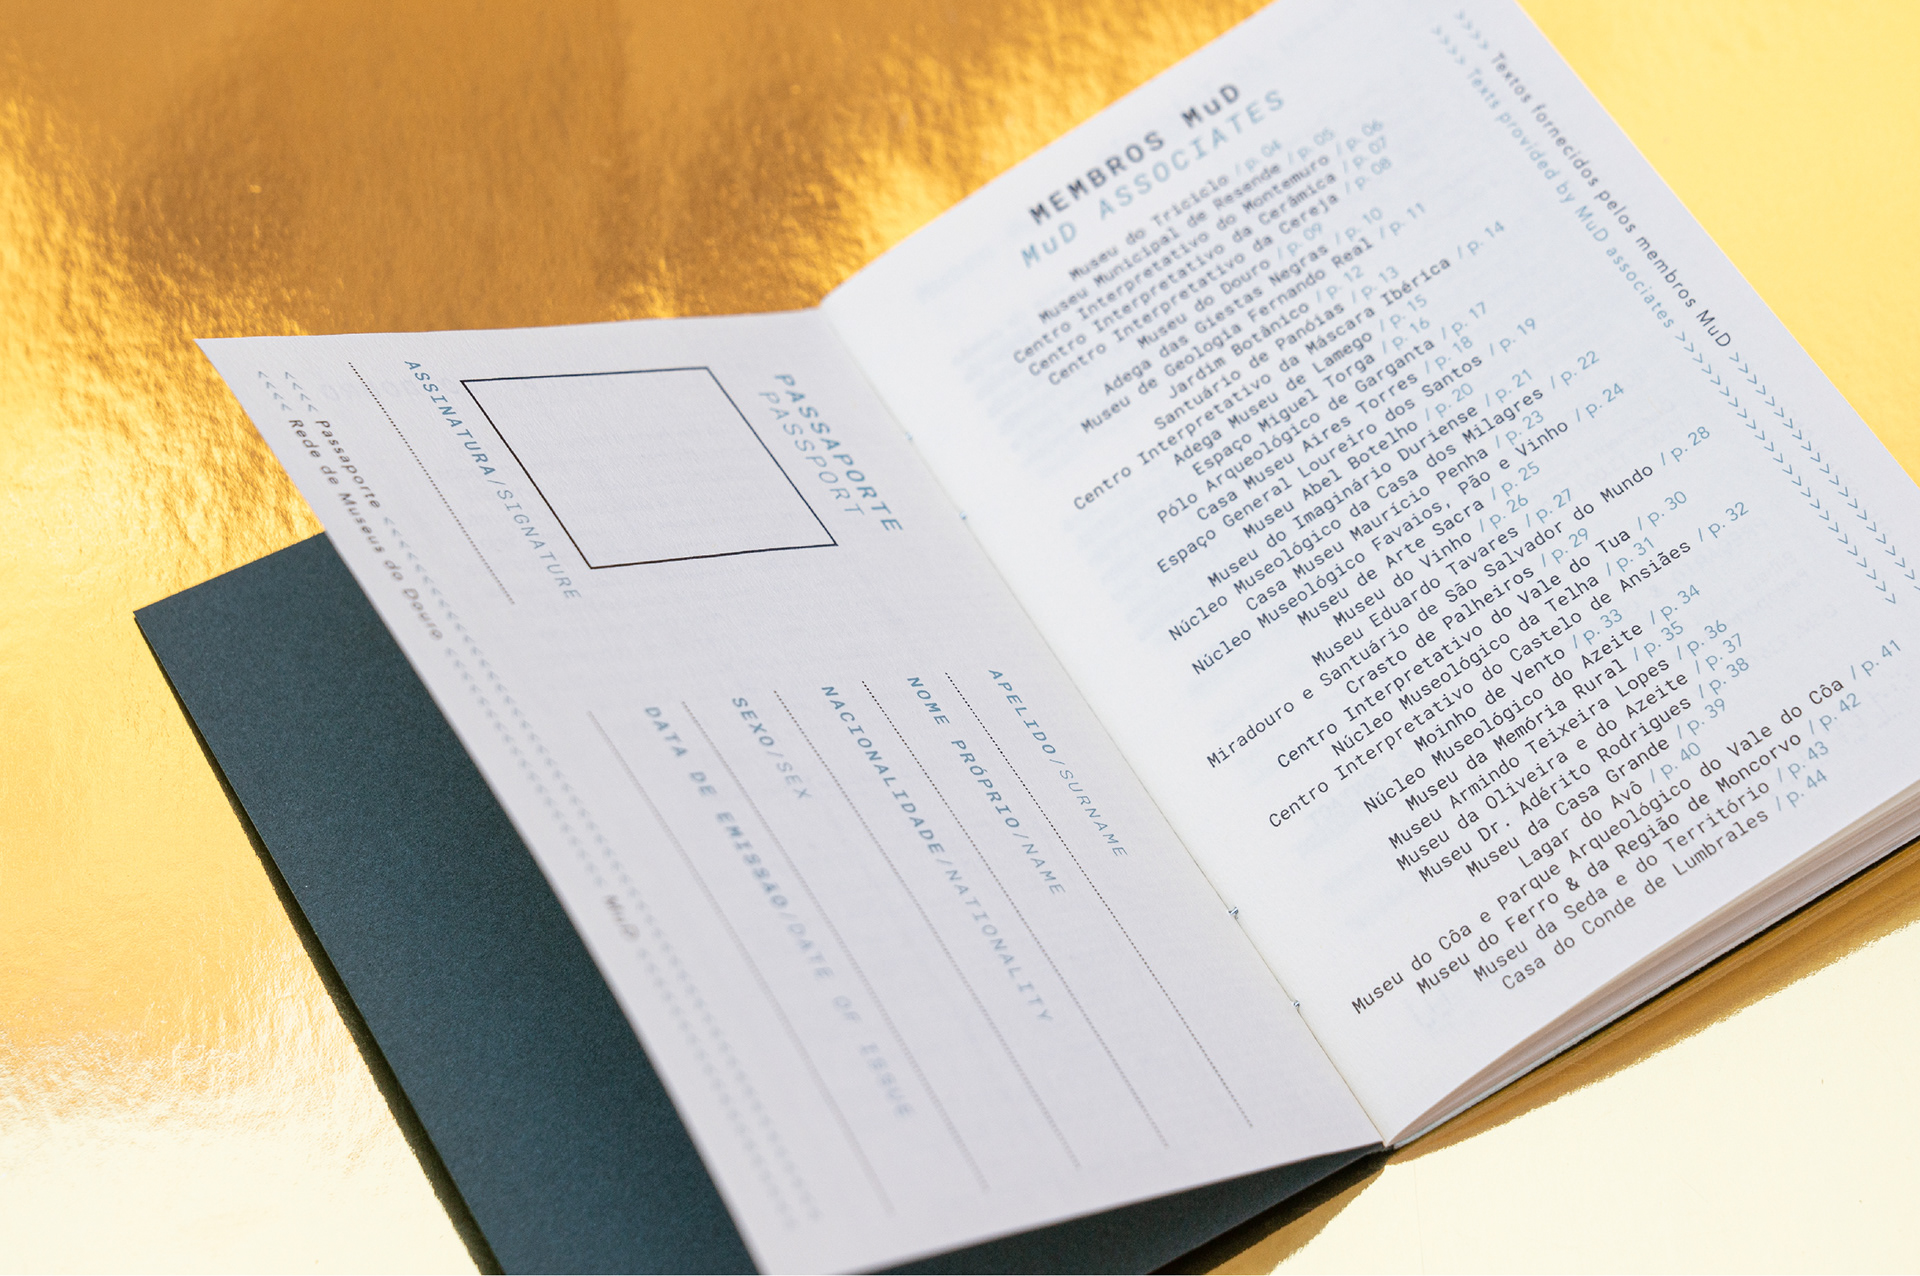 PASSAPORTE
PASSPORT
ASSINATURA/SIGNATURE
APELIDO/SURNAME
NOME PRÓPRIO/NAME
NACIONALIDADE/NATIONALITY
SEXO/SEX
DATA DE EMISSÃO/DATE OF ISSUE
<<<< Passaporte <<<<
<<<< Rede de Museus do Douro <<<< MuD <<<<
MEMBROS MuD
MuD ASSOCIATES
Museu do Triciclo / p. 04
Museu Municipal de Resende / p. 05
Centro Interpretativo do Montemuro / p. 06
Centro Interpretativo da Cerâmica / p. 07
Centro Interpretativo da Cereja / p. 08
Museu do Douro / p. 09
Adega das Giestas Negras / p. 10
Museu de Geologia Fernando Real / p. 11
Jardim Botânico / p. 12
Santuário de Panóias / p. 13
Centro Interpretativo da Máscara Ibérica / p. 14
Adega Museu de Lamego / p. 15
Espaço Miguel Torga / p. 16
Pólo Arqueológico de Garganta / p. 17
Casa Museu Aires Torres / p. 18
Espaço General Loureiro dos Santos / p. 19
Museu Abel Botelho / p. 20
Museu do Imaginário Duriense / p. 21
Núcleo Museológico da Casa dos Milagres / p. 22
Casa Museu Maurício Penha / p. 23
Núcleo Museológico Favaios, Pão e Vinho / p. 24
Museu de Arte Sacra / p. 25
Museu do Vinho / p. 26
Museu Eduardo Tavares / p. 27
Miradouro e Santuário de São Salvador do Mundo / p. 28
Crasto de Palheiros / p. 29
Centro Interpretativo do Vale do Tua / p. 30
Núcleo Museológico da Telha / p. 31
Centro Interpretativo do Castelo de Ansiães / p. 32
Moinho de Vento / p. 33
Núcleo Museológico do Azeite / p. 34
Museu da Memória Rural / p. 35
Museu Armindo Teixeira Lopes / p. 36
Museu da Oliveira e do Azeite / p. 37
Museu Dr. Adérito Rodrigues / p. 38
Museu da Casa Grande / p. 39
Lagar do Avô / p. 40
Museu do Côa e Parque Arqueológico do Vale do Côa / p. 41
Museu do Ferro & da Região de Moncorvo / p. 42
Museu da Seda e do Território / p. 43
Casa do Conde de Lumbrales / p. 44
>>>> Textos fornecidos pelos membros MuD >>>>
>>>> Texts provided by MuD associates >>>>